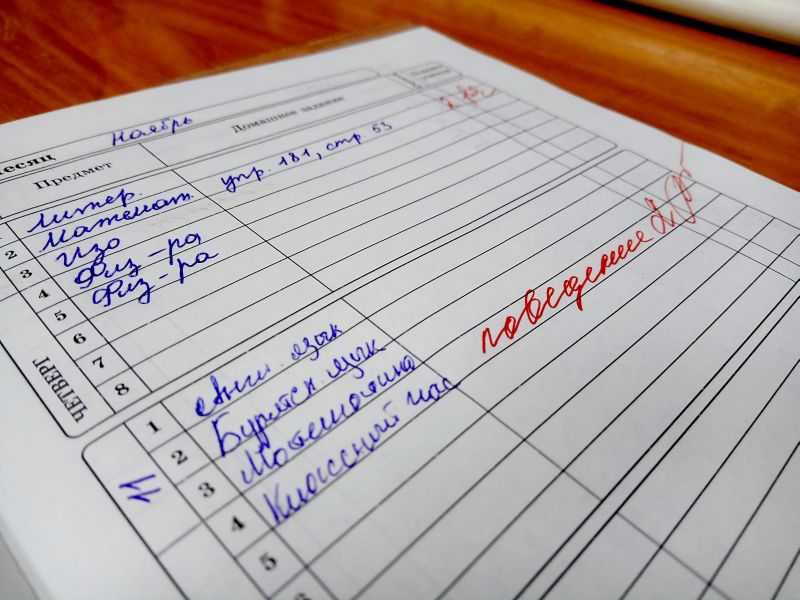 Ноябрь
Предмет Домашнее задание
1 Литер.
2 Математ. упр. 181, стр 53
3 Изо
4 Физ-ра
5 Физ-ра
6
7
8
ЧЕТВЕРГ
1 Англ. язык
2 Бурятск. язык
3 Математика
4 Классный час
5
11
поведение 2